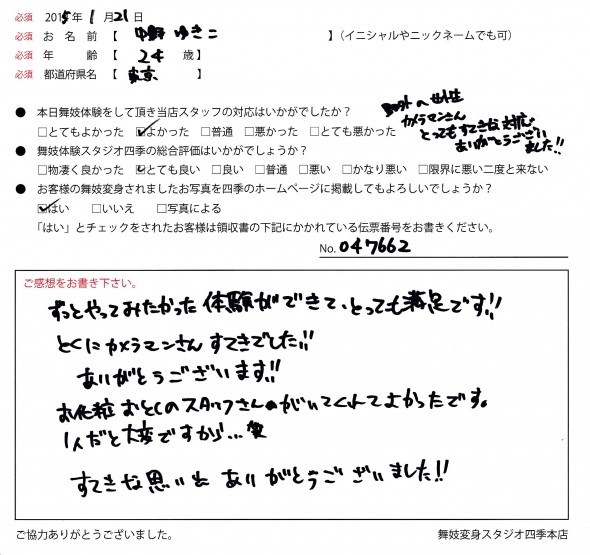 必須 2015年 1月21日
必須 お名前【 中野 ゆきこ 】（イニシャルやニックネームでも可）
必須 年齢【 24 歳】
必須 都道府県名【 東京 】
カメラマンさん
とってもすてきな対応
ありがとうござい
ました!!
● 本日舞妓体験をして頂き当店スタッフの対応はいかがでしたか？
□とてもよかった ☑よかった □普通 □悪かった □とても悪かった
● 舞妓体験スタジオ四季の総合評価はいかがでしょうか？
□物凄く良かった ☑とても良い □良い □普通 □悪い □かなり悪い □限界に悪い二度と来ない
● お客様の舞妓変身されましたお写真を四季のホームページに掲載してもよろしいでしょうか？
☑はい □いいえ □写真による
「はい」とチェックをされたお客様は領収書の下記にかかれている伝票番号をお書きください。
No. 047662
ご感想をお書き下さい。
ずっとやってみたかった 体験ができて、とっても満足です!!
とくにカメラマンさん すてきでした!!
ありがとうございます!!
お化粧 おとしのスタッフさんがいてくれてよかったです。
1人だと大変ですから...笑
すてきな思い出 ありがとうございました!!
ご協力ありがとうございました。
舞妓変身スタジオ四季本店